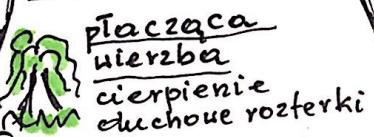 płacząca
wierzba
cierpienie
duchowe rozterki